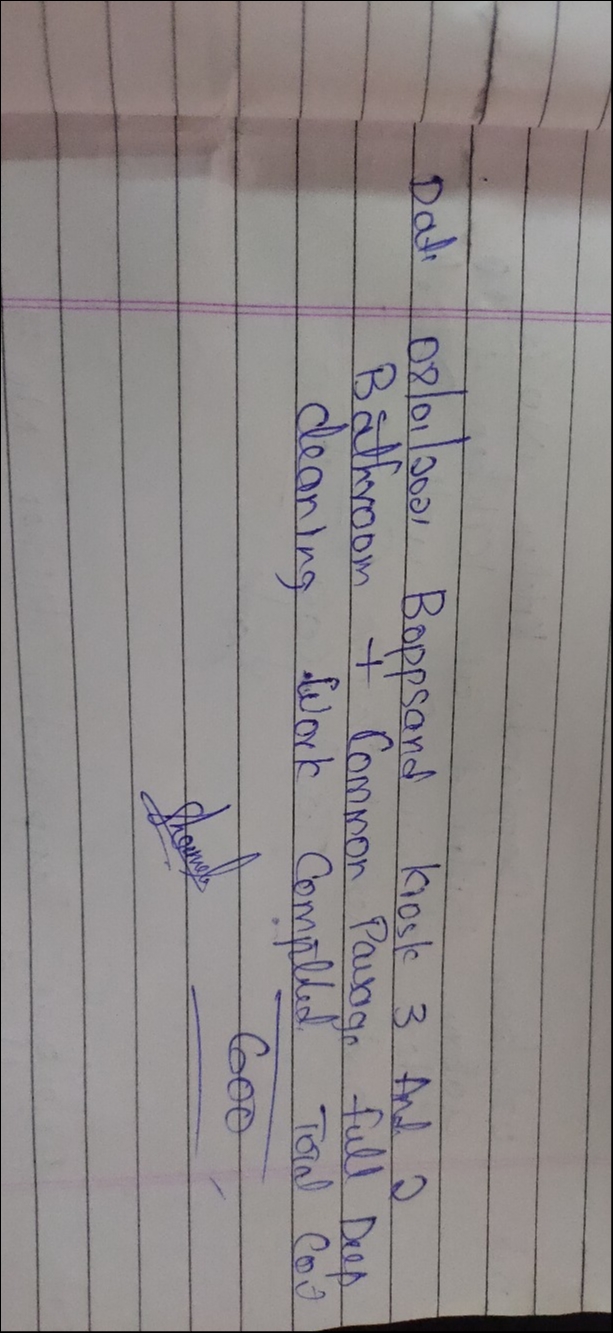 Date 08/01/2021 Boppsand kiosk 3 And 2
Bathroom + Common Passage full Deep
cleaning Work Complted. Total Cost
600